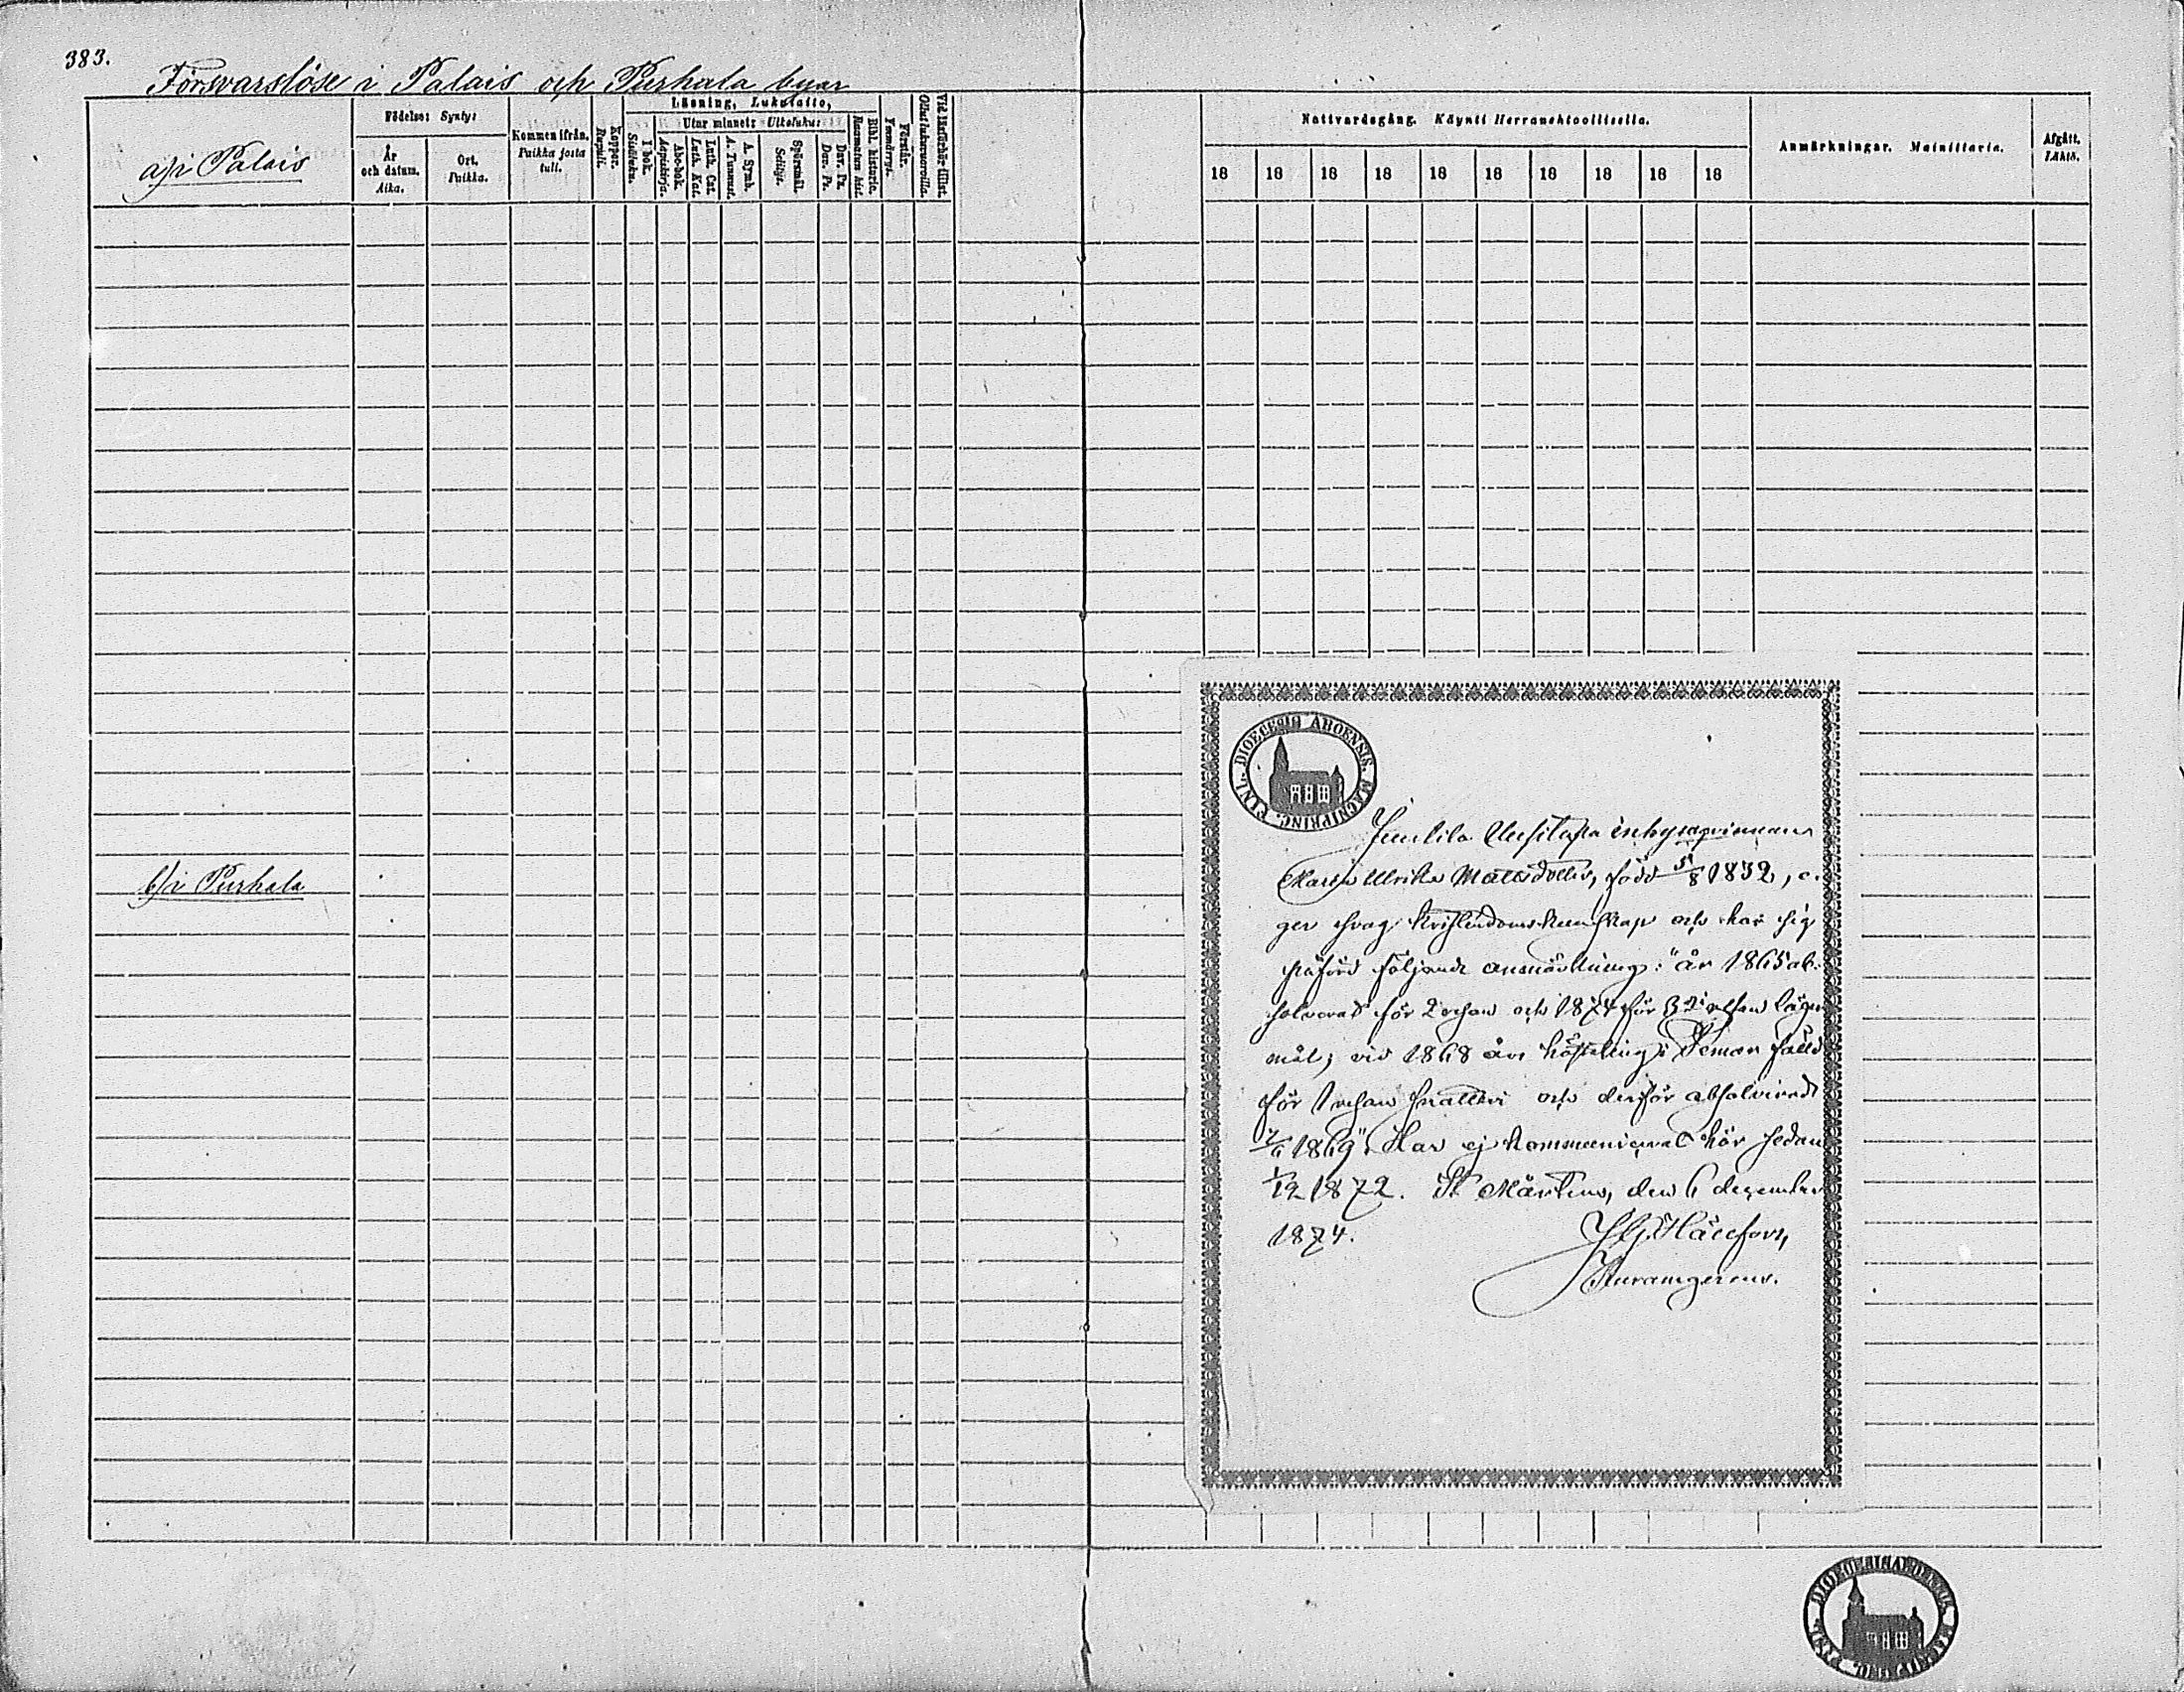 383.
Försvarslöse i Palais och Purhala byar
a/i Palais
Födelse: Syntyi
År och datum. Aika.
Ort. Paikka.
Kommen ifrån. Paikka josta tuli.
Koppor. Rupuli.
Läsning, Lukutaito,
I bok. Sisäluku.
Utur minnet: Ulkoluku:
Abc-bok. Aapiskirja.
Luth. Cat. Luth. Kat.
A. Symb. A. Tunnust.
Spörsmål. Selitys.
Dav. Ps. Dav. Ps.
Bibl. historia. Raamatun hist.
Förstår. Ymmärrys.
Vid läsförhör tillst. Ollut lukuvuoroilla.
Nattvardsgång. Käynti Herranehtoollisella.
18 18 18 18 18 18 18 18 18 18
Anmärkningar. Mainittavia.
Afgått. Lähtö.
b/i Purhala
DIOECESIS ABOENSIS. MAGNIPRINC. FINL.
inhysesqvinnan
Maria Ulrika Mattsdotter, född 5/8 1832, e-
ger svag kristendomskunskap och har sig
påförd följande anmärkning: "år 1865 ab-
solverad för 2 resan och 1874 för 3die resan läger
mål; vid 1868 års hösteting i Pemar fälld
för 1 resan snatteri och derför absolverad
1869". Har ej kommunicerat här sedan
1/12 1872. St Mårtens, den 6 dezember
1874.